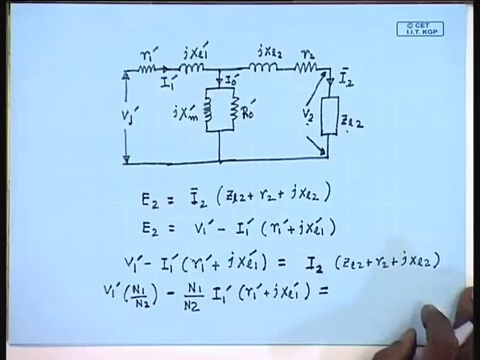 © CET
I.I.T. KGP
r₁′ jXₗ₁′ jXₗ₂ r₂
I₁′ I₀′ Ī₂
V₁′ jXₘ′ R₀′ V₂ Zₗ₂
E₂ = Ī₂ (Zₗ₂ + r₂ + jXₗ₂)
E₂ = V₁′ − I₁′ (r₁′ + jXₗ₁′)
V₁′ − I₁′ (r₁′ + jXₗ₁′) = I₂ (Zₗ₂ + r₂ + jXₗ₂)
V₁′ (N₁/N₂) − N₁/N₂ I₁′ (r₁′ + jXₗ₁′) =